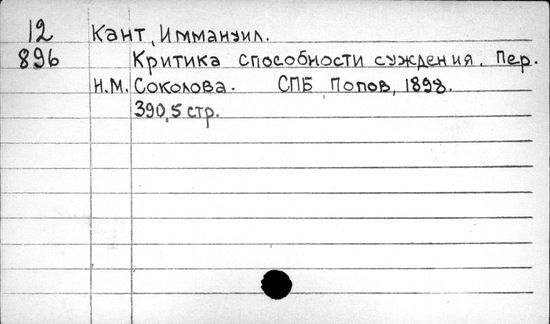 12 Кант, Иммануил.
896 Критика способности суждения. Пер.
Н.М. Соколова. СПБ Попов, 1898.
390,5 стр.